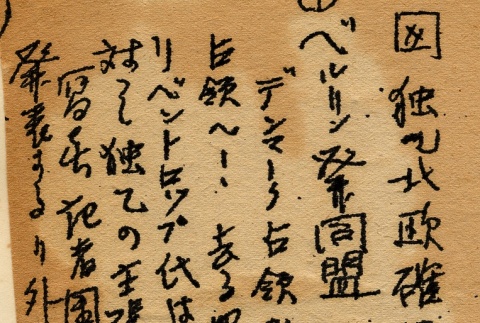 図 独乙北欧確
ベルリン発同盟
デンマーク占領
占領へ！ 去る
リベントロップ代は
対して独乙の主張
寫真 記者團
発表する リ外